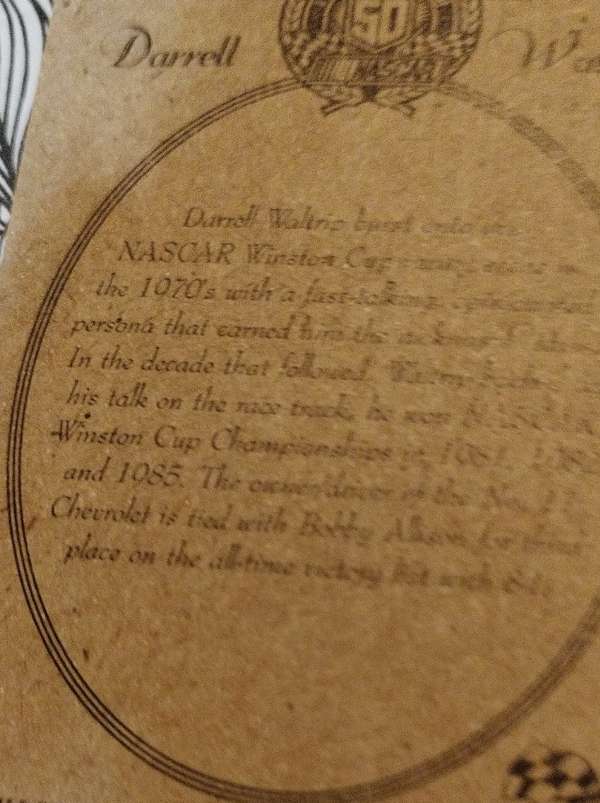 Darrell
50
NASCAR
Darrell Waltrip burst onto the
NASCAR Winston Cup racing scene in
the 1970's with a fast-talking, opinionated
persona that earned him the nickname
In the decade that followed, Waltrip backed
his talk on the race track, he won NASCAR
Winston Cup Championships in 1981, 1982
and 1985. The owner/driver of the No. 17
Chevrolet is tied with Bobby Allison for third
place on the all-time victory list with 84